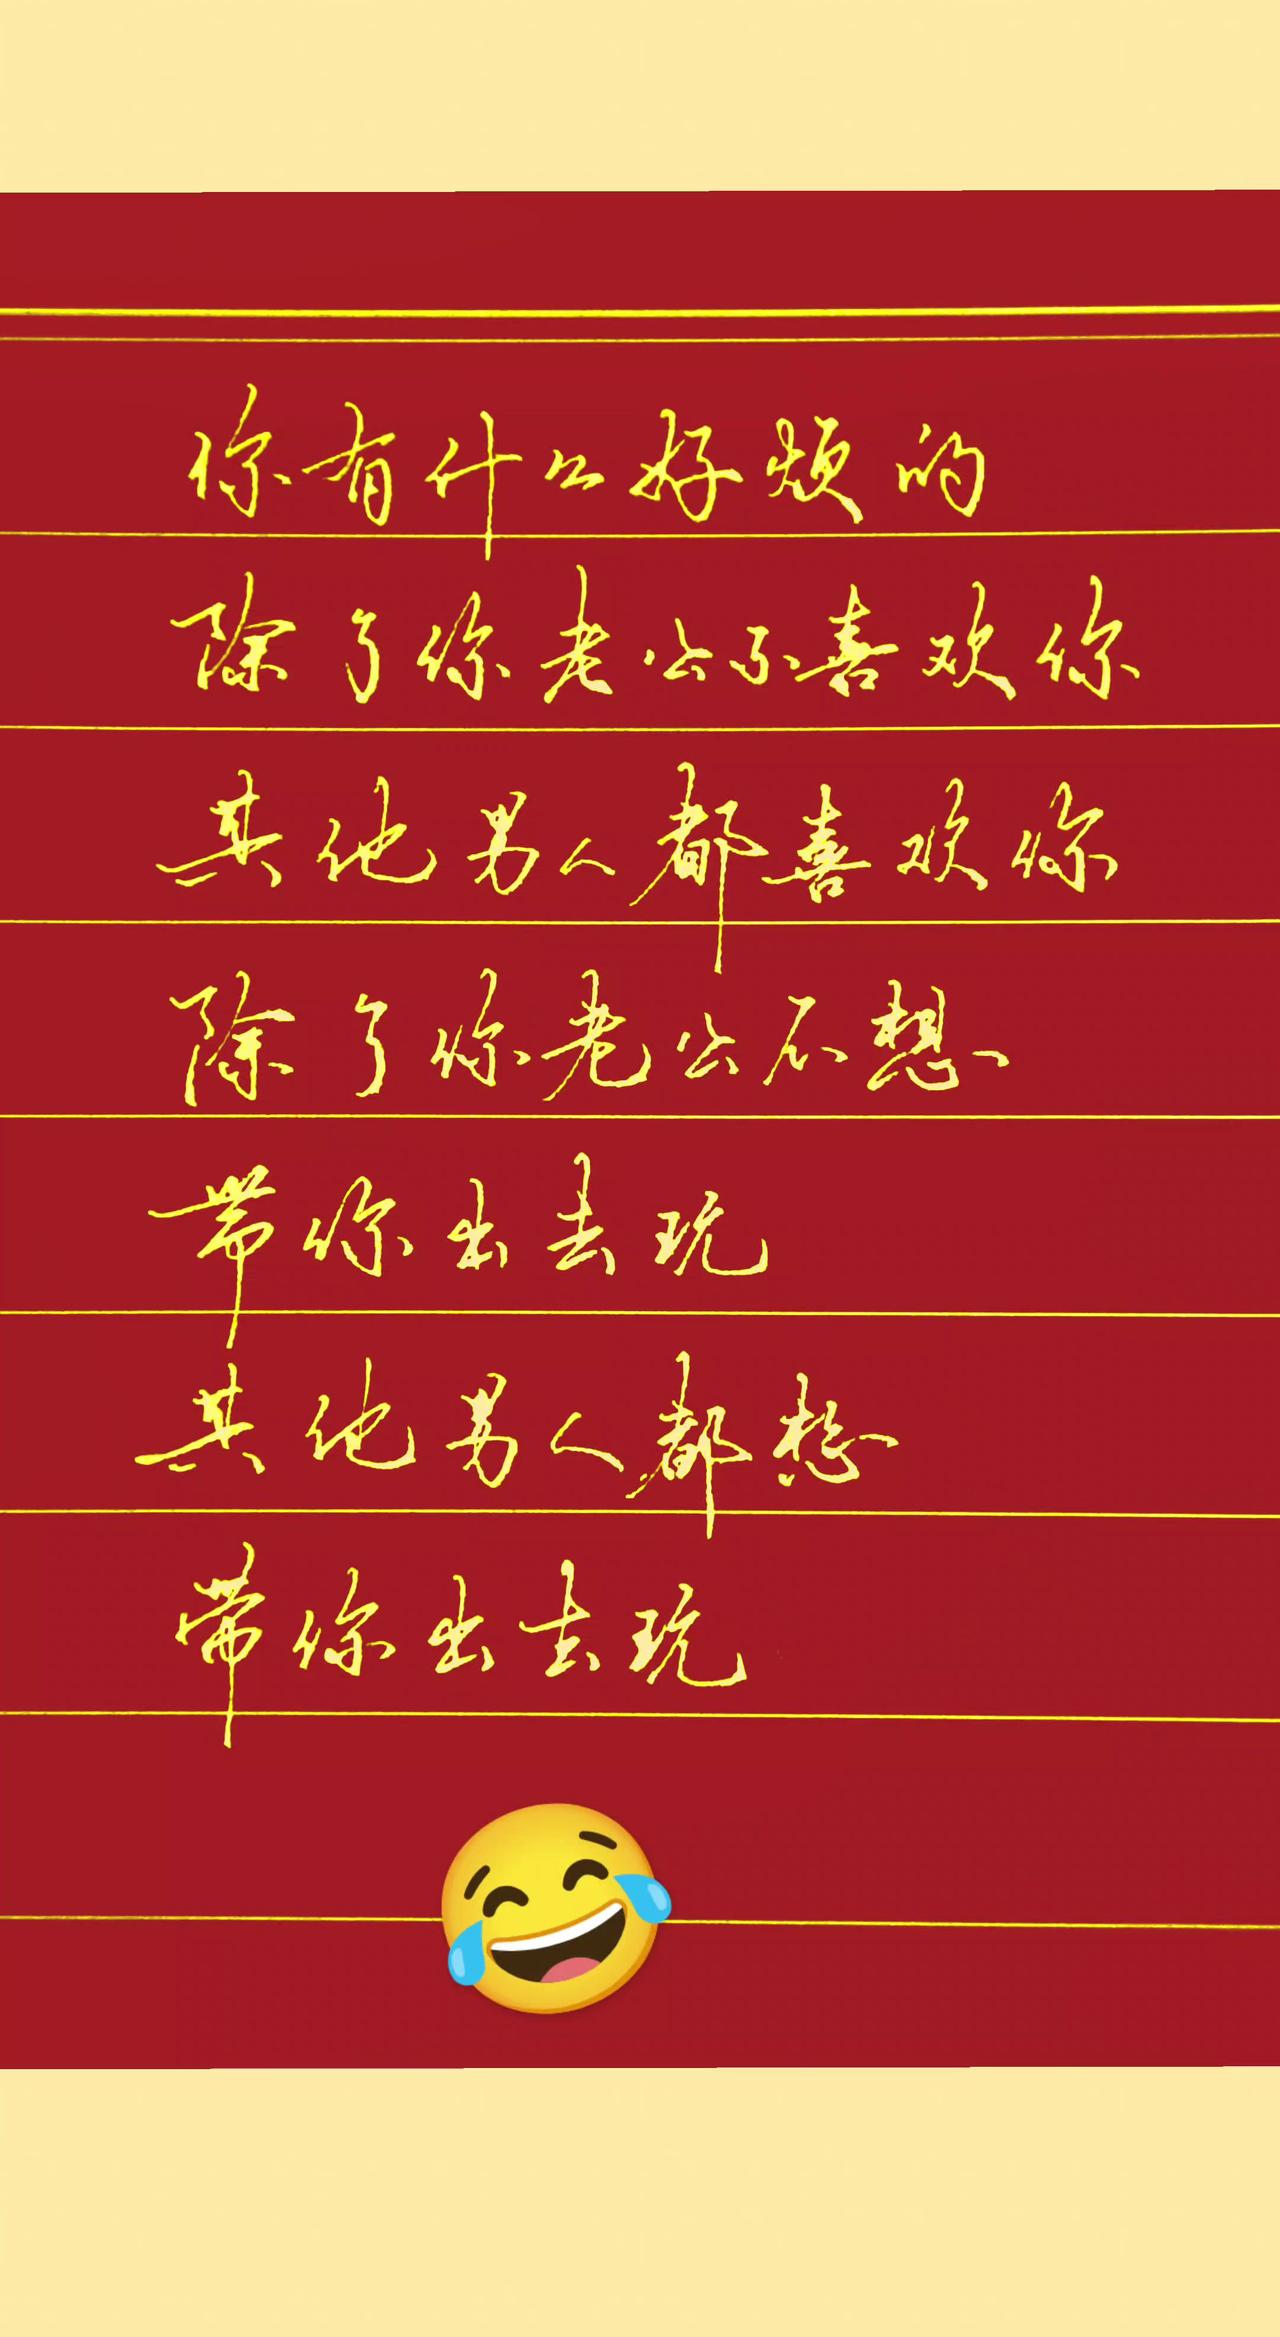 你有什么好烦的
除了你老公不喜欢你
其他男人都喜欢你
除了你老公不想
带你出去玩
其他男人都想
带你出去玩